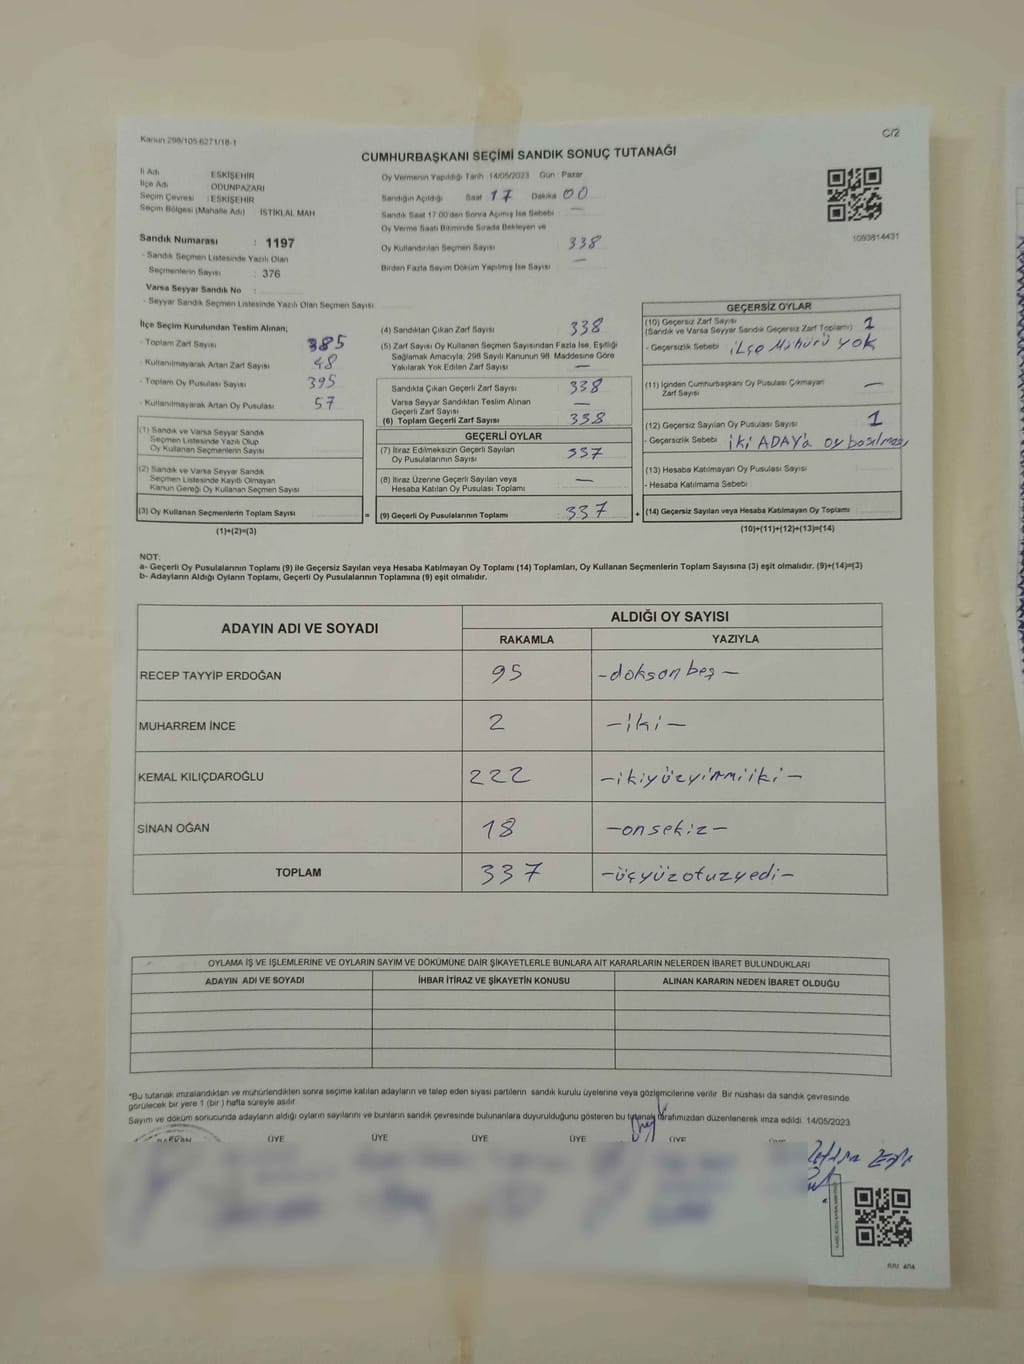 Kanun 298/105 6271/18-1
C/2
CUMHURBAŞKANI SEÇİMİ SANDIK SONUÇ TUTANAĞI
İl Adı ESKİŞEHİR
İlçe Adı ODUNPAZARI
Seçim Çevresi : ESKİŞEHİR
Seçim Bölgesi (Mahalle Adı) İSTİKLAL MAH
Sandık Numarası : 1197
- Sandık Seçmen Listesinde Yazılı Olan
Seçmenlerin Sayısı : 376
Varsa Seyyar Sandık No :
- Seyyar Sandık Seçmen Listesinde Yazılı Olan Seçmen Sayısı
Oy Vermenin Yapıldığı Tarih 14/05/2023 Gün Pazar
Sandığın Açıldığı Saat 17 Dakika 00
Sandık Saat 17.00'den Sonra Açılmış İse Sebebi : —
Oy Verme Saati Bitiminde Sırada Bekleyen ve
Oy Kullandırılan Seçmen Sayısı 338
Birden Fazla Sayım Döküm Yapılmış İse Sayısı —
1093814431
İlçe Seçim Kurulundan Teslim Alınan;
- Toplam Zarf Sayısı 385
- Kullanılmayarak Artan Zarf Sayısı 48
- Toplam Oy Pusulası Sayısı 395
- Kullanılmayarak Artan Oy Pusulası 57
(1) Sandık ve Varsa Seyyar Sandık
Seçmen Listesinde Yazılı Olup
Oy Kullanan Seçmenlerin Sayısı
(2) Sandık ve Varsa Seyyar Sandık
Seçmen Listesinde Kayıtlı Olmayan
Kanun Gereği Oy Kullanan Seçmen Sayısı
(3) Oy Kullanan Seçmenlerin Toplam Sayısı =
(1)+(2)=(3)
(4) Sandıktan Çıkan Zarf Sayısı 338
(5) Zarf Sayısı Oy Kullanan Seçmen Sayısından Fazla İse, Eşitliği
Sağlamak Amacıyla, 298 Sayılı Kanunun 98. Maddesine Göre
Yakılarak Yok Edilen Zarf Sayısı —
Sandıkta Çıkan Geçerli Zarf Sayısı 338
Varsa Seyyar Sandıktan Teslim Alınan
Geçerli Zarf Sayısı —
(6) Toplam Geçerli Zarf Sayısı 338
GEÇERLİ OYLAR
(7) İtiraz Edilmeksizin Geçerli Sayılan
Oy Pusulalarının Sayısı 337
(8) İtiraz Üzerine Geçerli Sayılan veya
Hesaba Katılan Oy Pusulası Toplamı —
(9) Geçerli Oy Pusulalarının Toplamı : 337 +
GEÇERSİZ OYLAR
(10) Geçersiz Zarf Sayısı
(Sandık ve Varsa Seyyar Sandık Geçersiz Zarf Toplamı) 1
- Geçersizlik Sebebi : İLÇE MÜHÜRÜ YOK
(11) İçinden Cumhurbaşkanı Oy Pusulası Çıkmayan
Zarf Sayısı —
(12) Geçersiz Sayılan Oy Pusulası Sayısı 1
- Geçersizlik Sebebi : iki ADAYA oy basılması
(13) Hesaba Katılmayan Oy Pusulası Sayısı
- Hesaba Katılmama Sebebi :
(14) Geçersiz Sayılan veya Hesaba Katılmayan Oy Toplamı
(10)+(11)+(12)+(13)=(14)
NOT:
a- Geçerli Oy Pusulalarının Toplamı (9) ile Geçersiz Sayılan veya Hesaba Katılmayan Oy Toplamı (14) Toplamları, Oy Kullanan Seçmenlerin Toplam Sayısına (3) eşit olmalıdır. (9)+(14)=(3)
b- Adayların Aldığı Oyların Toplamı, Geçerli Oy Pusulalarının Toplamına (9) eşit olmalıdır.
ADAYIN ADI VE SOYADI ALDIĞI OY SAYISI
RAKAMLA YAZIYLA
RECEP TAYYİP ERDOĞAN 95 -doksan beş-
MUHARREM İNCE 2 -iki-
KEMAL KILIÇDAROĞLU 222 -ikiyüzyirmiiki-
SİNAN OĞAN 18 -onsekiz-
TOPLAM 337 -üçyüzotuzyedi-
OYLAMA İŞ VE İŞLEMLERİNE VE OYLARIN SAYIM VE DÖKÜMÜNE DAİR ŞİKAYETLERLE BUNLARA AİT KARARLARIN NELERDEN İBARET BULUNDUKLARI
ADAYIN ADI VE SOYADI İHBAR İTİRAZ VE ŞİKAYETİN KONUSU ALINAN KARARIN NEDEN İBARET OLDUĞU
*Bu tutanak imzalandıktan ve mühürlendikten sonra seçime katılan adayların ve talep eden siyasi partilerin sandık kurulu üyelerine veya gözlemcilerine verilir. Bir nüshası da sandık çevresinde
görülecek bir yere 1 (bir) hafta süreyle asılır.
Sayım ve döküm sonucunda adayların aldığı oyların sayılarını ve bunların sandık çevresinde bulunanlara duyurulduğunu gösteren bu tutanak tarafımızdan düzenlenerek imza edildi. 14/05/2023
BAŞKAN ÜYE ÜYE ÜYE ÜYE ÜYE